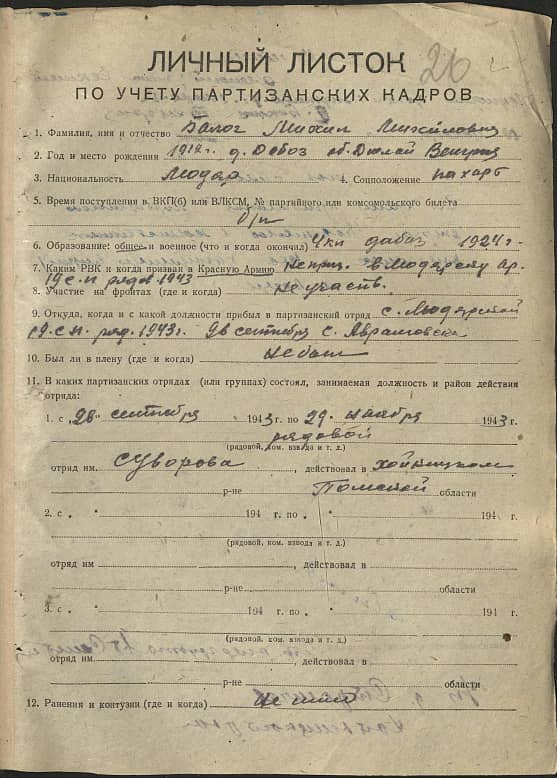 26
ЛИЧНЫЙ ЛИСТОК
ПО УЧЕТУ ПАРТИЗАНСКИХ КАДРОВ
1. Фамилия, имя и отчество Балог Михил Михйлович
2. Год и место рождения 1912 г. д. Добоз об. Дюлай Венгрия
3. Национальность Модяр 4. Соцположение пахарь
5. Время поступления в ВКП(б) или ВЛКСМ, № партийного или комсомольского билета
б/п
6. Образование: общее и военное (что и когда окончил) 4 кл добаз 1924 г.
7. Каким РВК и когда призван в Красную Армию не приз. в Модярску ар.
19 с.п рядов. 1943
8. Участие на фронтах (где и когда) не участв.
9. Откуда, когда и с какой должности прибыл в партизанский отряд с. Модярской
19 с.п. ряд. 1943 г. 26 сентября с. Аврамовска
10. Был ли в плену (где и когда) не был
11. В каких партизанских отрядах (или группах) состоял, занимаемая должность и район действия
отряда:
1. с „26" сентября 1943 г. по 29 ноября 1943 г.
рядовой
(рядовой, ком. взвода и т. д.)
отряд им. Суворова, действовал в Хойницком
р-не Полеской области
2. с „ " 194 г. по „ " 194 г.
(рядовой, ком. взвода и т. д.)
отряд им , действовал в
р-не области
3. с „ " 194 г. по „ " 194 г.
(рядовой, ком. взвода и т. д.)
отряд им , действовал в
р-не области
12. Ранения и контузии (где и когда) не имею